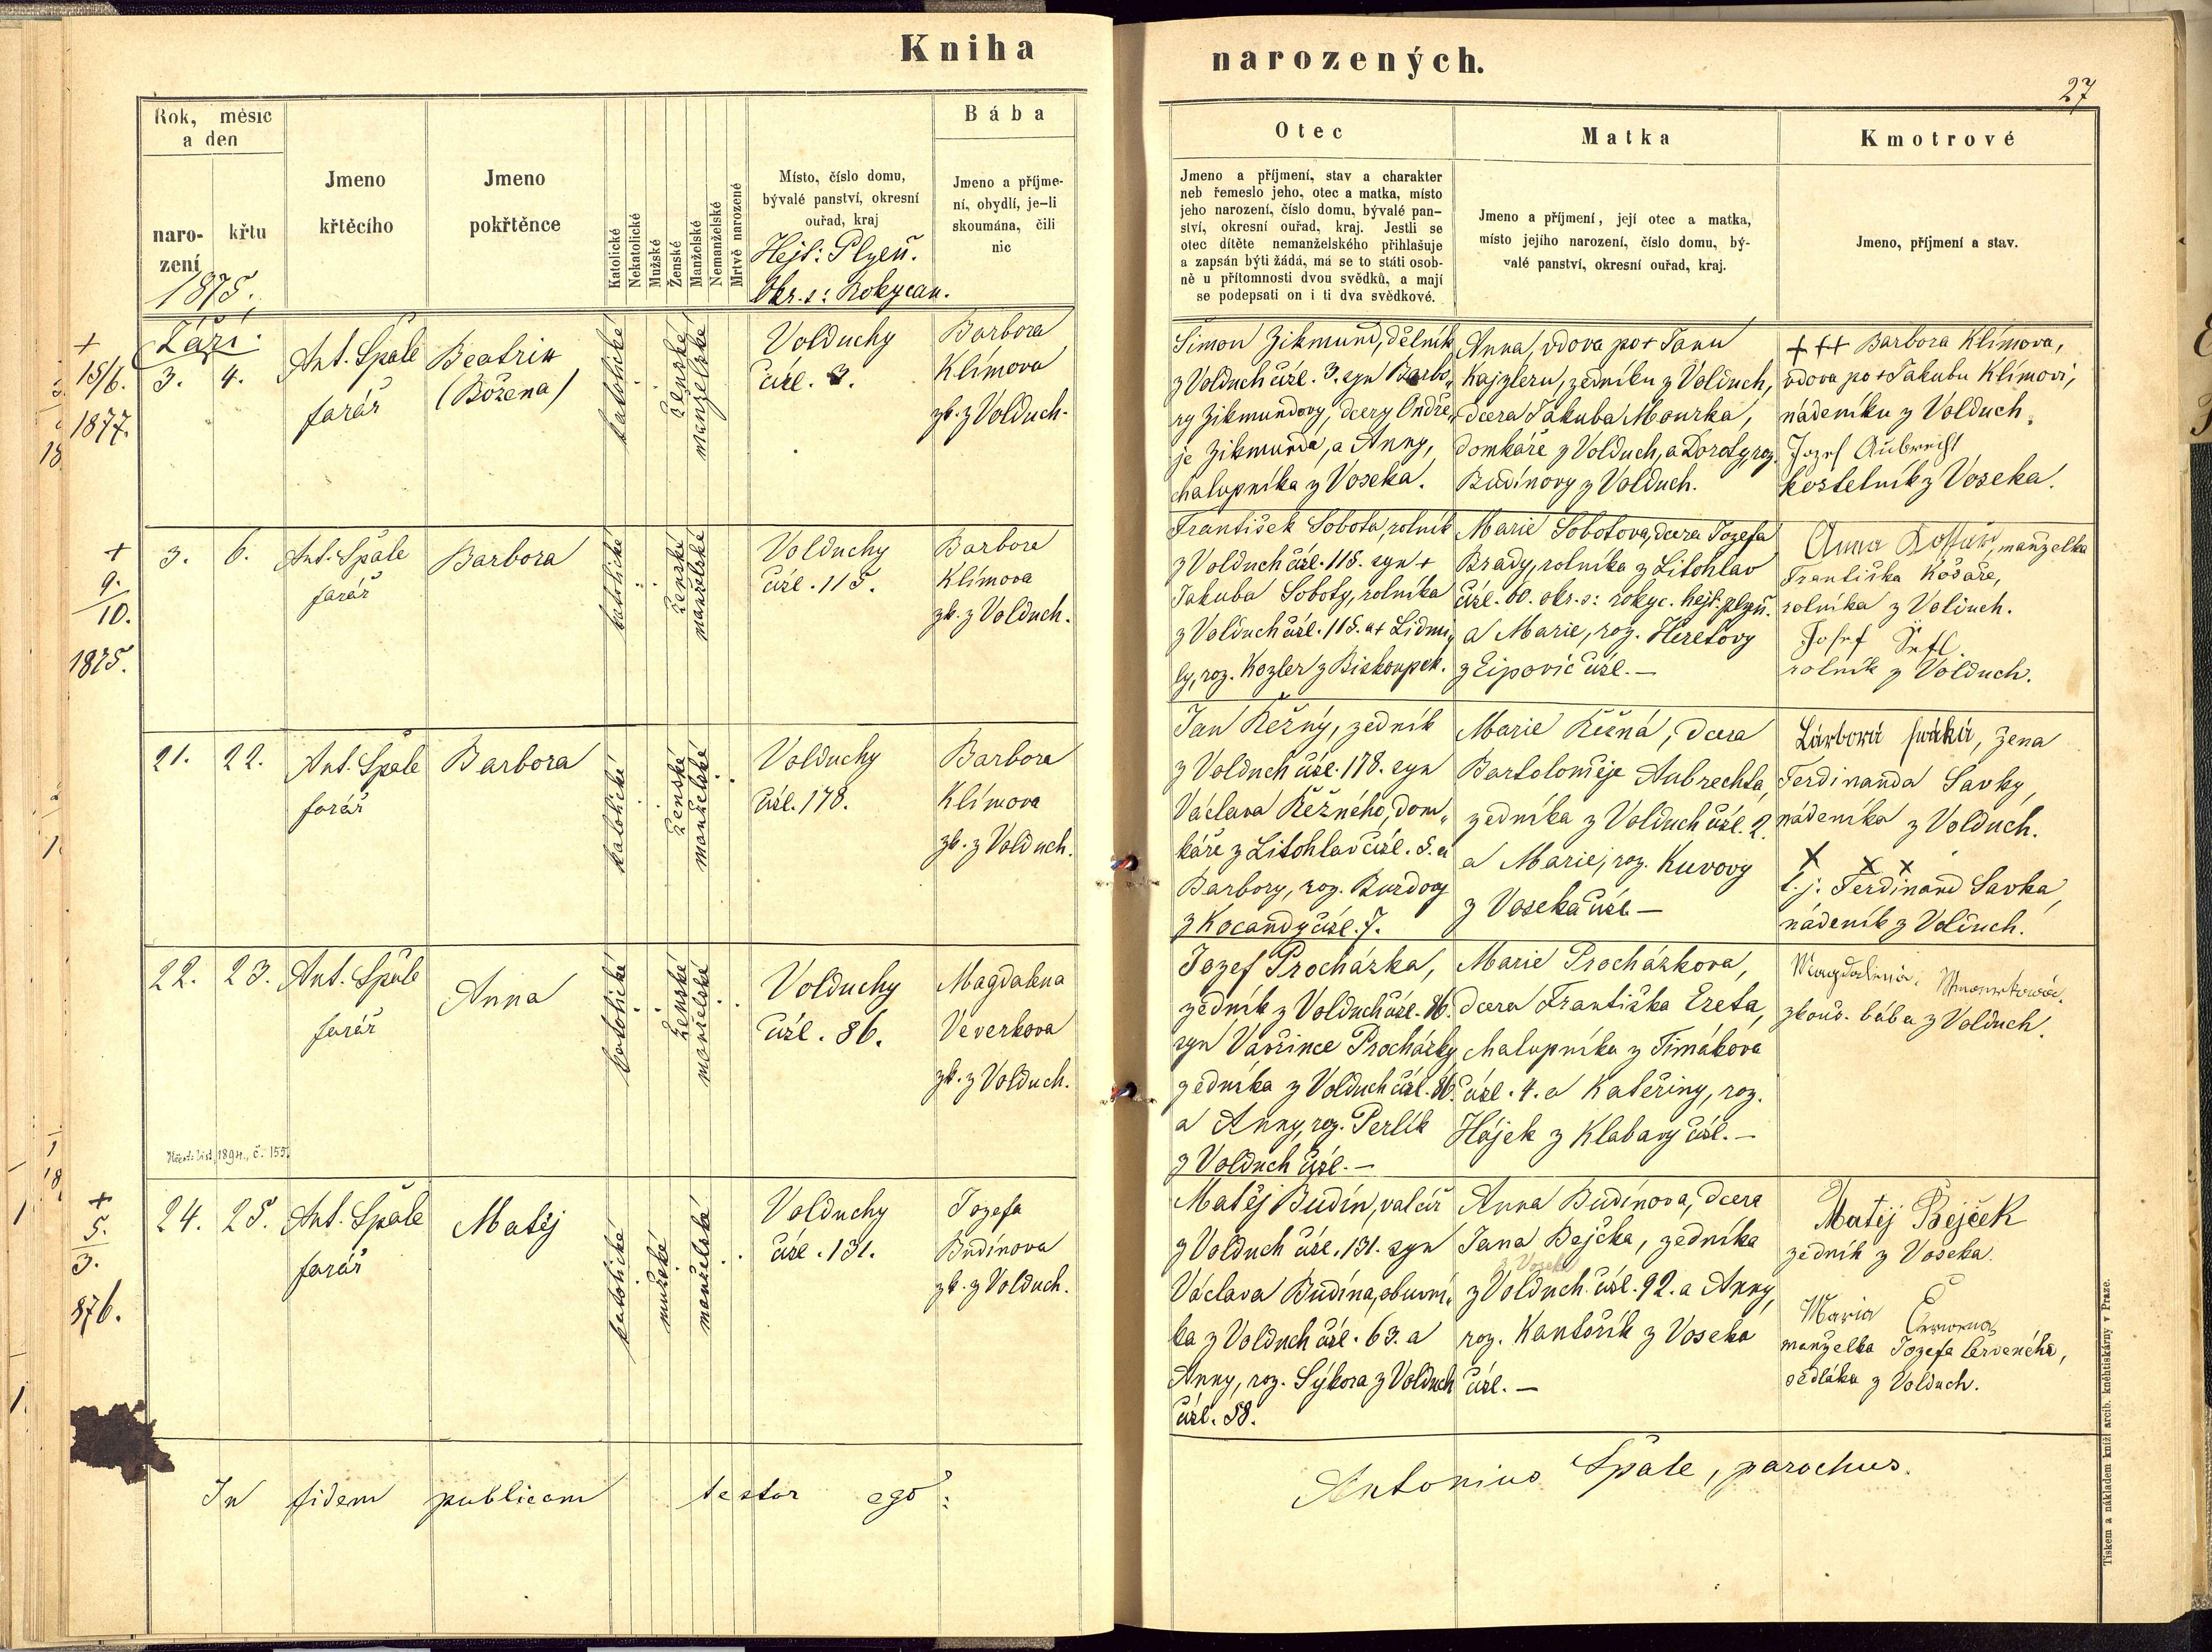 Kniha narozených.
27
Rok, měsíc
a den
naro-
zení
křtu
1875.
Jmeno
křtěcího
Jmeno
pokřtěnce
Katolické
Nekatolické
Mužské
Ženské
Manželské
Nemanželské
Mrtvě narozené
Místo, číslo domu,
bývalé panství, okresní
ouřad, kraj
Hejt: Plzeň.
Okr. s: Rokycan.
Bába
Jmeno a příjme-
ní, obydlí, je-li
skoumána, čili
nic
Otec
Jmeno a příjmení, stav a charakter
neb řemeslo jeho, otec a matka, místo
jeho narození, číslo domu, bývalé pan-
ství, okresní ouřad, kraj. Jestli se
otec dítěte nemanželského přihlašuje
a zapsán býti žádá, má se to státi osob-
ně u přítomnosti dvou svědků, a mají
se podepsati on i ti dva svědkové.
Matka
Jmeno a příjmení, její otec a matka,
místo jejího narození, číslo domu, bý-
valé panství, okresní ouřad, kraj.
Kmotrové
Jmeno, příjmení a stav.
Září.
+
15/6.
1877.
3. 4.
Ant. Špale
farář
Beatrix
(Božena)
katolické
ženské
manželské
Volduchy
čísl. 3.
Barbora
Klímova
zk. z Volduch.
Šimon Zikmund, dělník
z Volduch čísl. 3. syn Barbo„
ry Zikmundovy, dcery Ondře„
je Zikmunda, a Anny,
chalupníka z Voseka.
Anna, vdova po + Janu
Kajzleru, zedníku z Volduch,
dcera Jakuba Mourka,
domkáře z Volduch, a Doroty, roz.
Budínovy z Volduch.
+++ Barbora Klímova,
vdova po + Jakubu Klímovi,
nádeníku z Volduch.
Jozef Aubrecht
kostelník z Voseka.
+
9.
10.
1875.
3. 6.
Ant. Špale
farář
Barbora
katolické
ženské
manželské
Volduchy
čísl. 115.
Barbora
Klímova
zk. z Volduch.
František Sobota, rolník
z Volduch čísl. 115. syn +
Jakuba Soboty, rolníka
z Volduch čísl. 115. a + Lidmi„
ly, roz. Kozler z Biskoupek.
Marie Sobotova, dcera Jozefa
Brady, rolníka z Litohlav
čísl. 60. okr. s: rokyc. hejt: plzeň.
a Marie, roz. Heretovy
z Ejpovic čísl. —
Anna manželka
Františka Košaře,
rolníka z Volduch.
Josef
rolník z Volduch.
21. 22.
Ant. Špale
farář
Barbora
katolické
ženské
manželské
Volduchy
čísl. 178.
Barbora
Klímova
zk. z Volduch.
Jan Řežný, zedník
z Volduch čísl. 178. syn
Václava Řežného, dom„
káře z Litohlav čísl. 5. a
Barbory, roz. Burdovy
z Kocandy čísl. 7.
Marie Řežná, dcera
Bartoloměje Aubrechta,
zedníka z Volduch čísl. 2.
a Marie, roz. Kuvovy
z Voseka čísl. —
žena
Ferdinanda Savky,
nádeníka z Volduch.
x x x
t. j. Ferdinand Savka,
nádeník z Volduch.
22. 23.
Ant. Špale
farář
Anna
katolické
ženské
manželské
Volduchy
čísl. 86.
Magdalena
Veverkova
zk. z Volduch.
Jozef Procházka,
zedník z Volduch čísl. 86.
syn Vavřince Procházky
zedníka z Volduch čísl. 86.
a Anny, roz. Perlík
z Volduch čísl. —
Marie Procházkova,
dcera Františka Ereta,
chalupníka z Timákova
čísl. 4. a Kateřiny, roz.
Hájek z Klabavy čísl. —
Magdalena
zkouš. bába z Volduch.
Křestní list, 1894., č. 155.
+
5.
3.
876.
24. 25.
Ant. Špale
farář
Matěj
katolické
mužské
manželské
Volduchy
čísl. 131.
Jozefa
Budínova
zk. z Volduch.
Matěj Budín, valcíř
z Volduch čísl. 131. syn
Václava Budína, obuvní„
ka z Volduch čísl. 63. a
Anny, roz. Sýkora z Volduch
čísl. 58.
Anna Budínova, dcera
Jana Bejčka, zedníka
z Voseka
z Volduch čísl. 92. a Anny,
roz. Kantořík z Voseka
čísl. —
Matěj Bejček
zedník z Voseka.
Maria Červená
manželka Jozefa Červeného,
sedláka z Volduch.
In fidem publicam testor ego:
Antonius Špale, parochus.
Tiskem a nákladem knížecí arcib. kněhtiskárny v Praze.